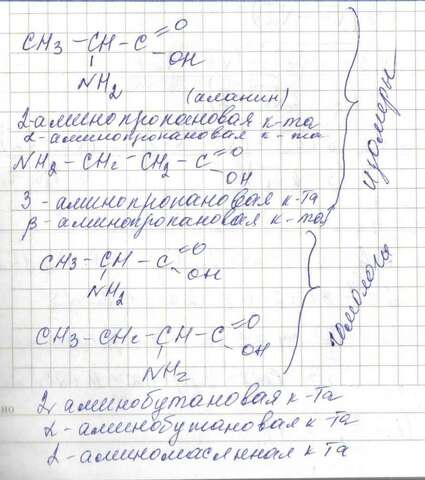 CH3 – CH – C =O
OH
NH2
(аланин)
2-аминопропановая к-та
α-аминопропановая к-та
NH2 – CH2 – CH2 – C =O
OH
3 - аминопропановая к-та
β - аминопропановая к-та
изомеры
CH3 – CH – C =O
OH
NH2
CH3 – CH2 – CH – C =O
OH
NH2
гомологи
2, аминобутановая к-та
α - аминобутановая к та
α - аминомасляная к та